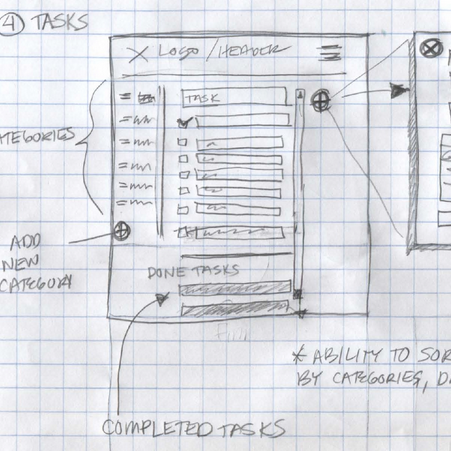 4 TASKS
LOGO/HEADER
TASK
ATEGORIES
ADD
NEW
CATEGORY
DONE TASKS
* ABILITY TO SOR
BY CATEGORIES, D
COMPLETED TASKS